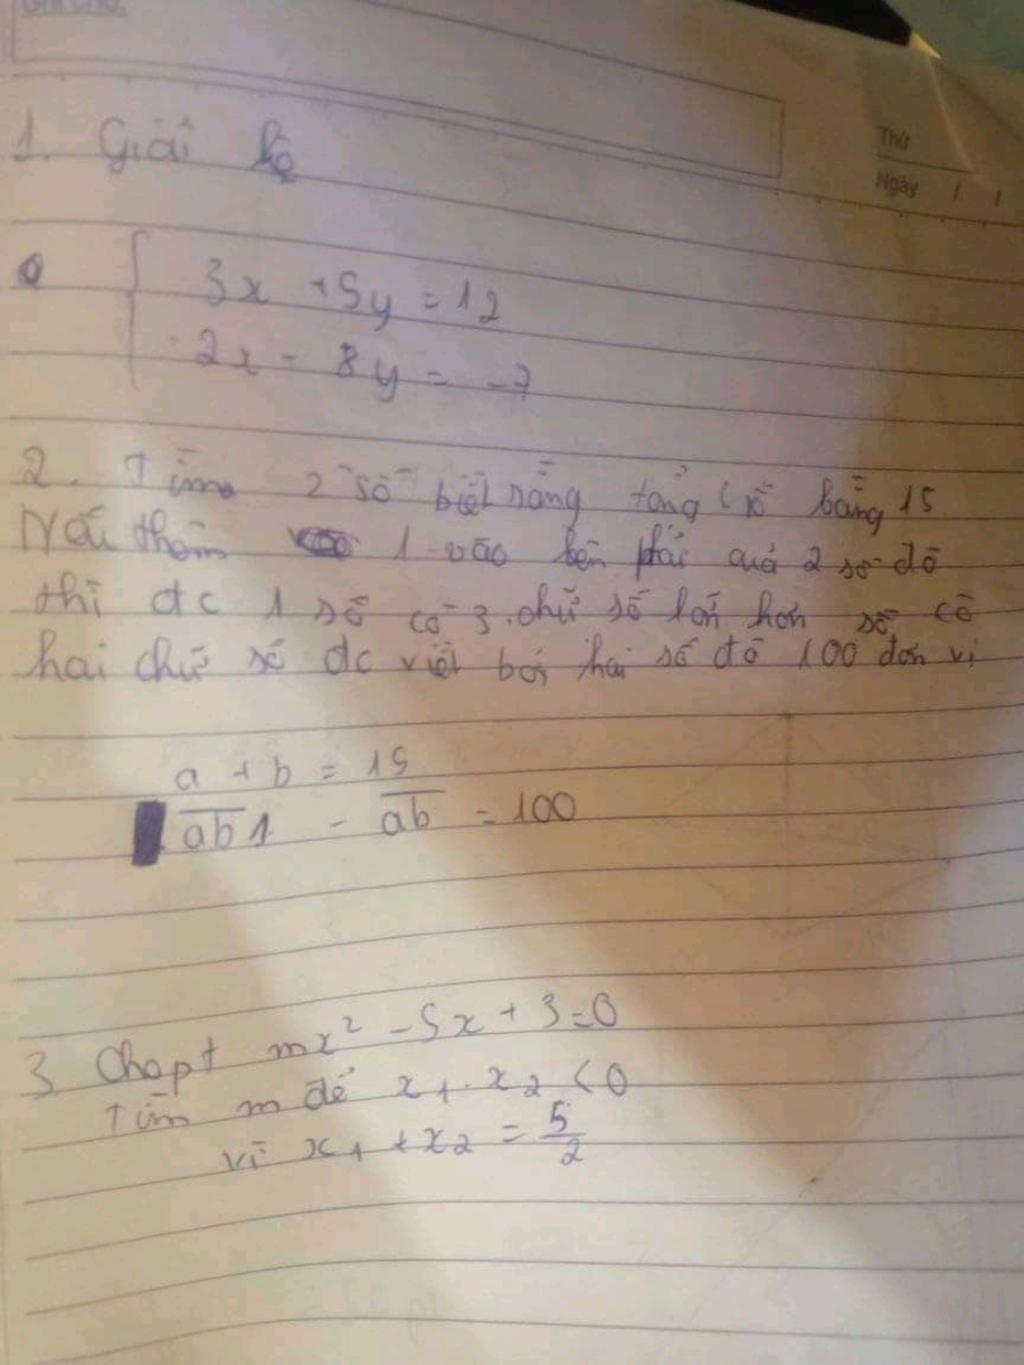 Thứ
Ngày / /
1. Giải hệ
3x + 5y = 12
2x - 8y = -7
2. Tìm 2 số biết rằng tổng số bằng 15.
Nếu thêm 1 vào bên phải quả 2 số đó
thì đc 1 số có 3 chữ số lớn hơn số có
hai chữ số đc viết bởi hai số đó 100 đơn vị
a + b = 15
ab1 - ab = 100
3. Cho pt mx² - 5x + 3 = 0
Tìm m để x₁ . x₂ < 0
vì x₁ + x₂ = 5/2